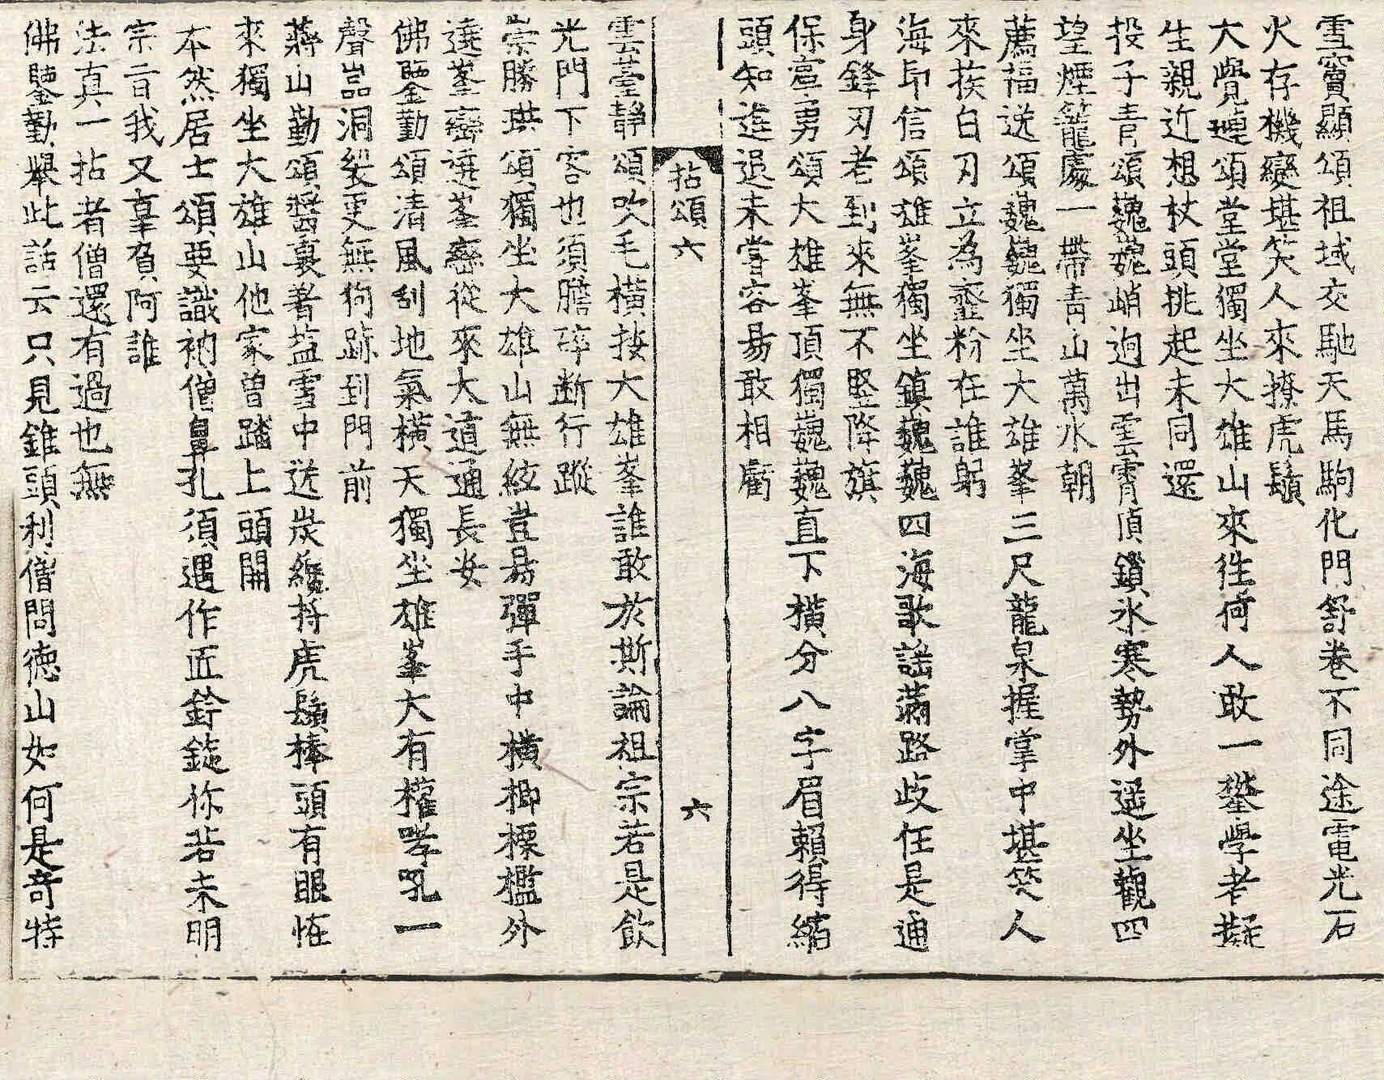 雪竇顯頌祖域交馳天馬駒化門舒卷不同途電光石
火存機變堪笑人來撩虎鬚
大覺璉頌堂堂獨坐大雄山來往何人敢一攀學者擬
生親近想杖頭挑起未同還
投子青頌巍巍峭迥出雲霄頂鎖氷寒勢外遥坐觀四
望煙籠處一帶青山萬水朝
薦福逸頌巍巍獨坐大雄峯三尺龍泉握掌中堪笑人
來挨白刃立為虀粉在誰躬
海印信頌雄峯獨坐鎮巍巍四海歌謠滿路歧任是通
身鋒刃老到來無不竪降旗
保寧勇頌大雄峯頂獨巍巍直下橫分八字眉賴得縮
頭知進退未甞容易敢相虧
拈頌六
六
雲臺靜頌吹毛橫按大雄峯誰敢於斯論祖宗若是飲
光門下客也須膽碎斷行蹤
崇勝珙頌獨坐大雄山無絃豈易彈手中橫楖𣗖檻外
遶峯巒遶峯巒從來大道通長安
佛鑒勤頌清風刮地氣橫天獨坐雄峯大有權哮吼一
聲嵓洞裂更無狗跡到門前
蔣山勤頌醬裏著塩雪中送炭纔捋虎鬚棒頭有眼怪
來獨坐大雄山他家曾踏上頭開
本然居士頌要識衲僧鼻孔須遇作匠鉗鎚你若未明
宗旨我又辜負阿誰
法真一拈者僧還有過也無
佛鑒勤擧此話云只見錐頭利僧問德山如何是奇特